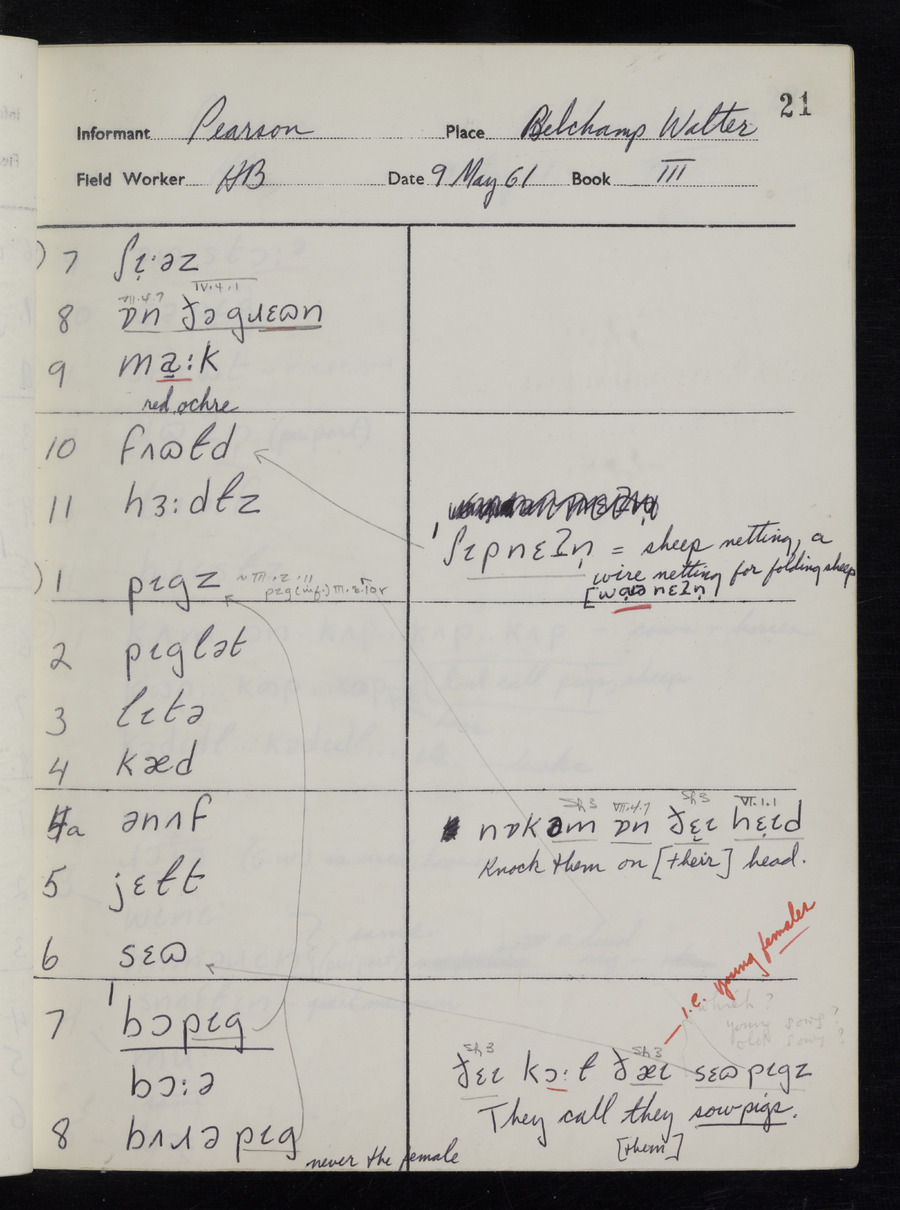 21
Informant Pearson Place Belchamp Walter
Field Worker HB Date 9 May 61 Book III
) 7 ʃɪ̣·əz
VII.4.7 IV.4.1
8 ɒn ðəgɹɛɷn
9 ma̠:k
red ochre
10 fʌɷɫd
11 hɜ:dɫz
ˈʃɪpnɛʔn̩ = sheep netting, a
wire netting for folding sheep
nɛʔn̩]
) 1 pɪgz
2 pɪglət
3 lɪtə
4 kæd
Sh3 VII.4.7 Sh3 VI.1.1
4a ənʌf nɒkəm ɒn ðɛ̣ɪ hɛ̣ɪd
Knock them on [their] head.
5 jɛɫt
6 sɛɷ
i.e. young females
which?
young sows?
old sows?
7 ˈbɔpɪg
Sh3 Sh3
ðɛɪ kɔ:ɫ ðæɪ sɛɷpɪgz
bɔ:ə
They call they sow-pigs.
[them]
8 bʌɹə pɪg
never the female